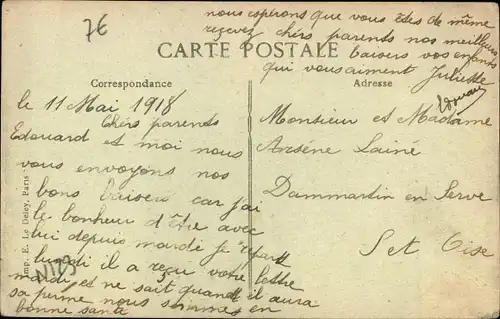 7€
CARTE POSTALE
Correspondance
le 11 Mai 1918
Chérs parents
Edouard et moi nous
vous envoyons nos
bons baisers car j'ai
le bonheur d'être avec
lui depuis mardi je repart
lundi il a reçu votre lettre
mardi et ne sait quand il aura
sa perme nous sommes en
bonne santé
nous espérons que vous êtes de même
reçevez chérs parents nos meilleurs
baisers vos enfants
qui vous aiment Juliette
Edouard
Adresse
Monsieur et Madame
Arsène Lainé
Dammartin en Serve
Set Oise
Imp. E. Le Deley, Paris